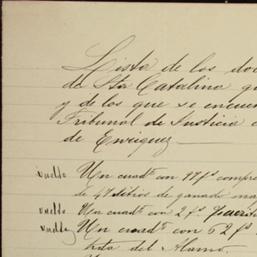 Lista de los doc
de Sta Catalina q
y de los que se encuen
Tribunal de Justicia e
de Enriquez
vuelto Un cuadº con 99 fs compre
de 48 títulos de ganado ma
vuelto Un cuadº con 2 fs
vuelto Un cuadº con 62 fs
del Alamo.